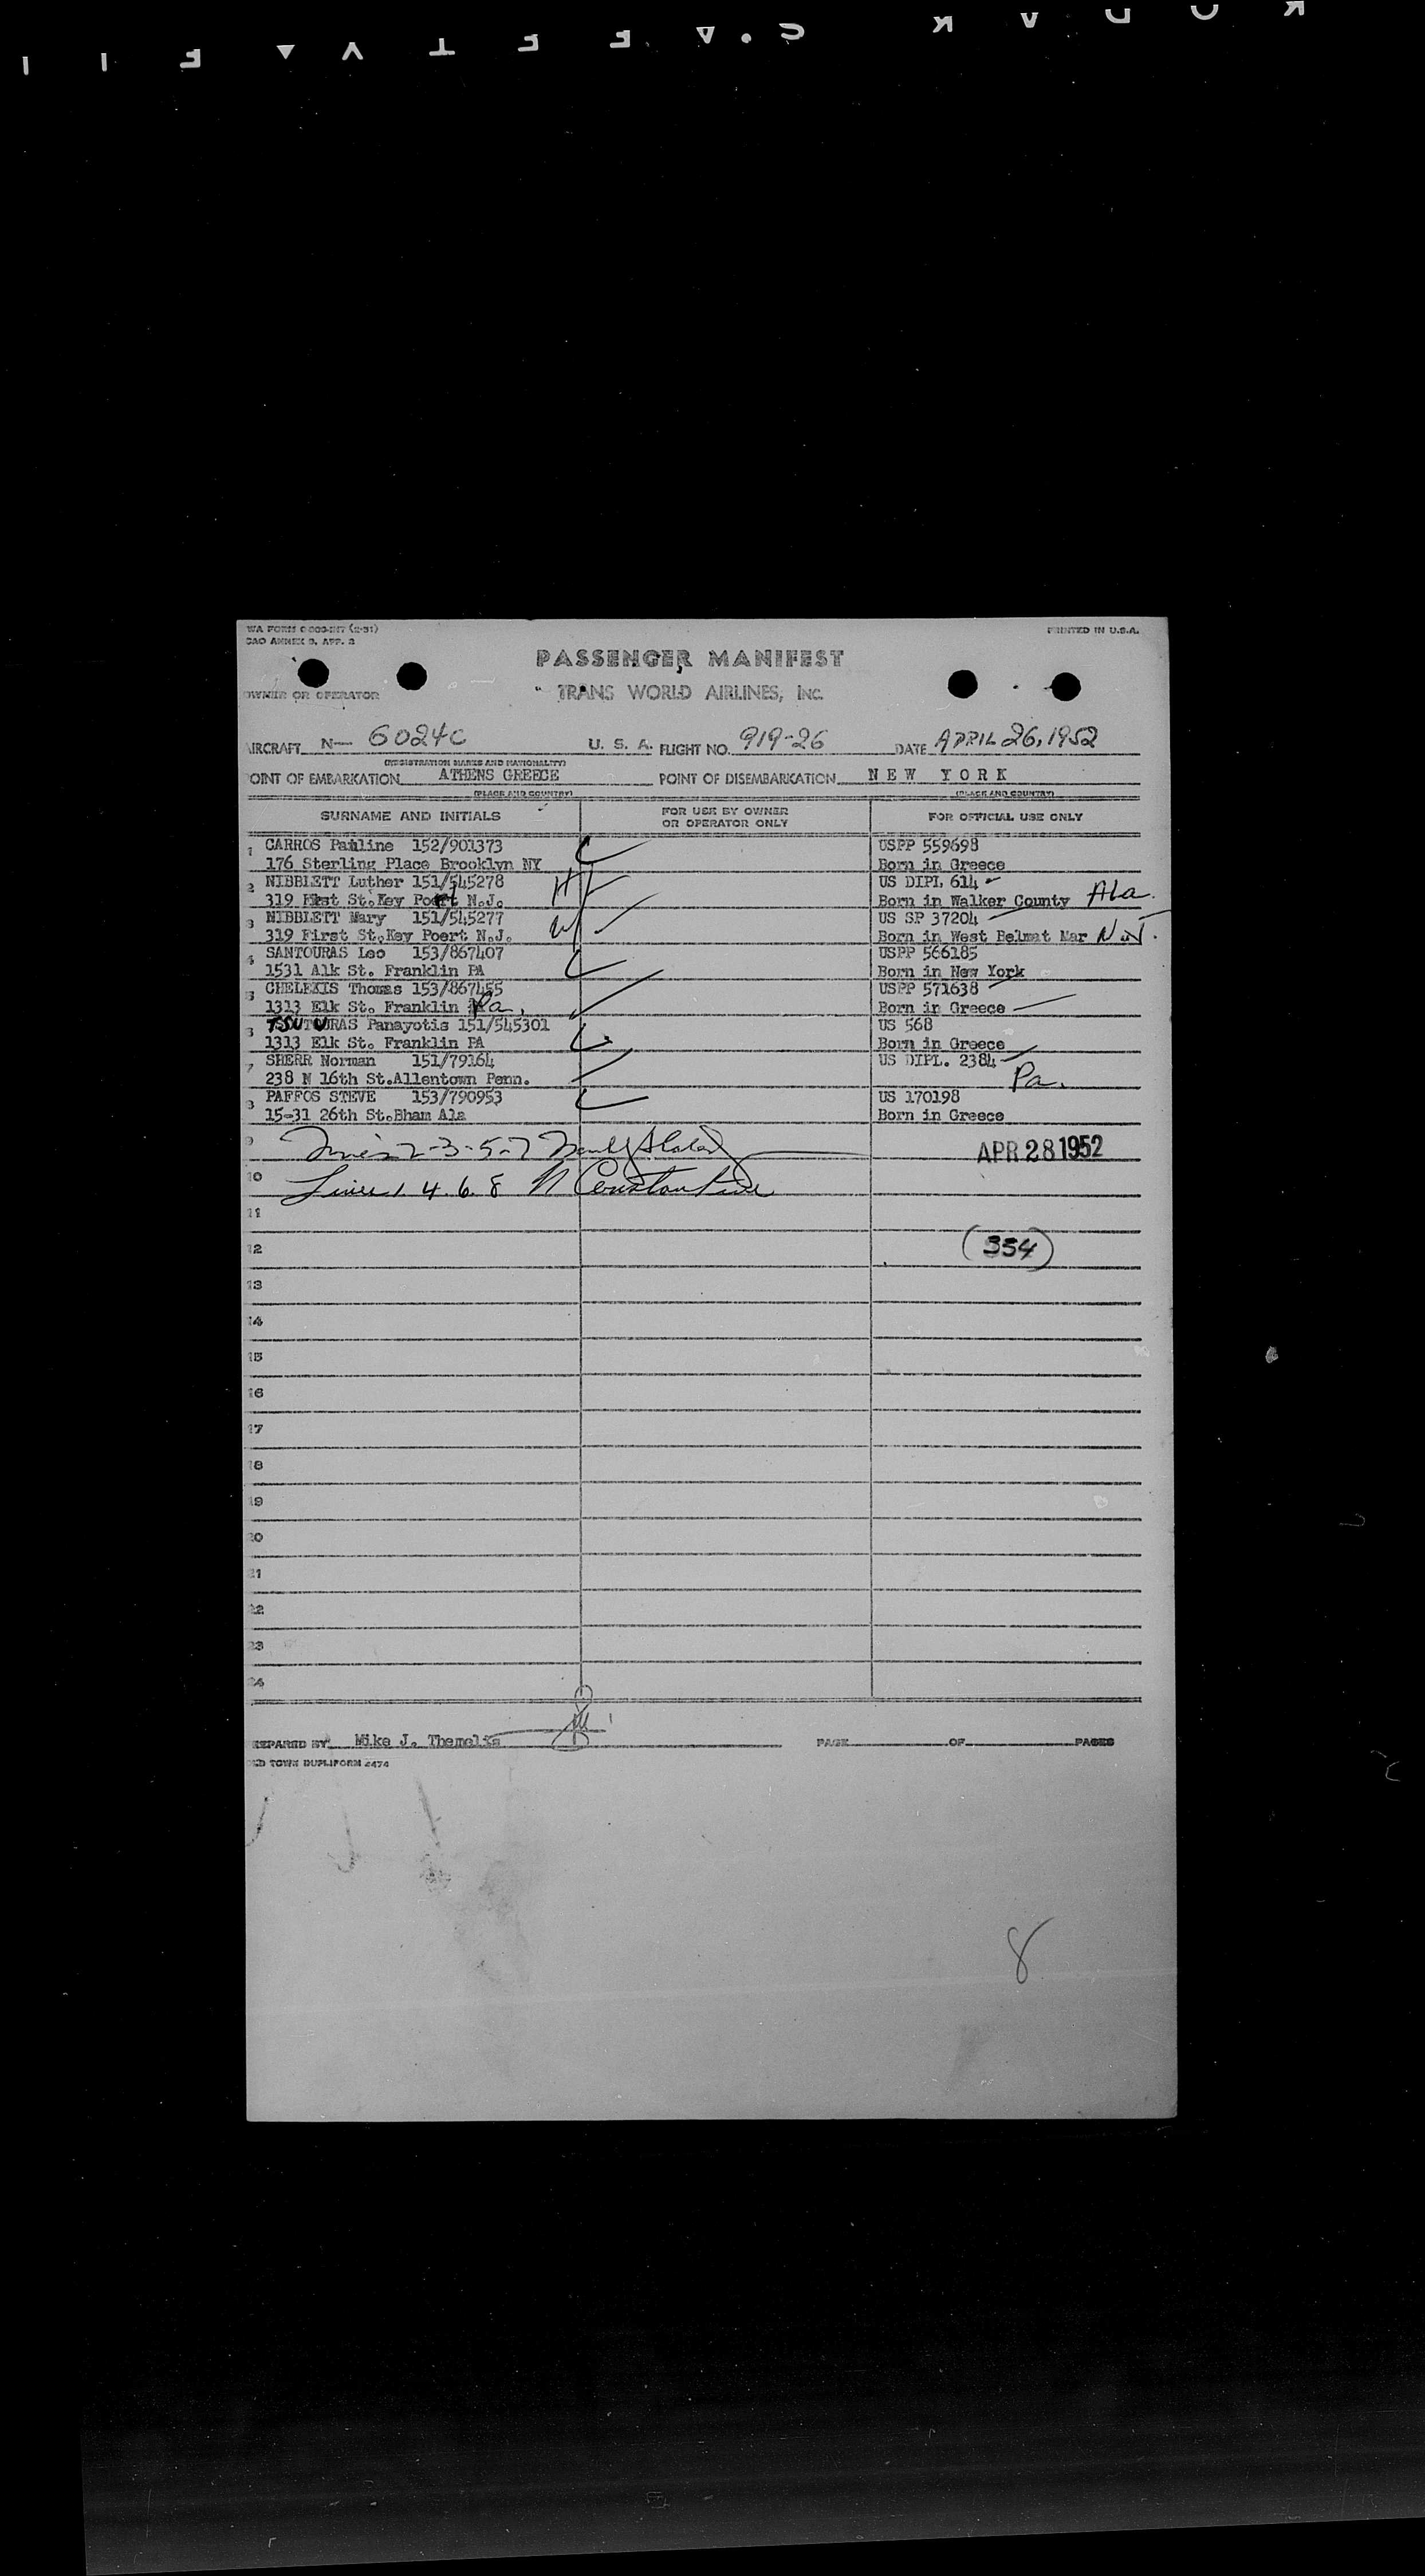 PRINTED IN U.S.A.
PASSENGER MANIFEST
OWNER OR OPERATOR TRANS WORLD AIRLINES, Inc.
IRCRAFT N— 6024C U. S. A. FLIGHT NO. 919-26 DATE APRIL 26, 1952
(REGISTRATION MARKS AND NATIONALITY)
OINT OF EMBARKATION ATHENS GREECE POINT OF DISEMBARKATION NEW YORK
(PLACE AND COUNTRY) (PLACE AND COUNTRY)
SURNAME AND INITIALS FOR USE BY OWNER OR OPERATOR ONLY FOR OFFICIAL USE ONLY
1 CARROS Pauline 152/901373 USPP 559698
176 Sterling Place Brooklyn NY Born in Greece
2 NIBBLETT Luther 151/545278 H US DIPL 614
319 First St.Key Port N.J. Born in Walker County Ala.
3 NIBBLETT Mary 151/545277 W US SP 37204
319 First St.Key Poert N.J. Born in West Belmat Mar N.J.
4 SANTOURAS Leo 153/867407 USPP 566185
1531 Alk St. Franklin PA Born in New York
5 CHELEKIS Thomas 153/867455 USPP 571638
1313 Elk St. Franklin Pa. Born in Greece
TSOUTOURAS Panayotis 151/545301 US 568
1313 Elk St. Franklin PA Born in Greece
7 SHERR Norman 151/79164 US DIPL. 2384
238 N 16th St.Allentown Penn. Pa.
PAFFOS STEVE 153/790953 US 170198
15-31 26th St.Bham Ala Born in Greece
9 2-3-5-7 APR 28 1952
10 Lines 1 4. 6. 8 N Constantine
11
12 (354)
13
14
15
16
17
18
19
20
21
22
23
24
REPARED BY Mike J. Themelis PAGE OF PAGES
OLD TOWN DUPLIFORM 2474
8